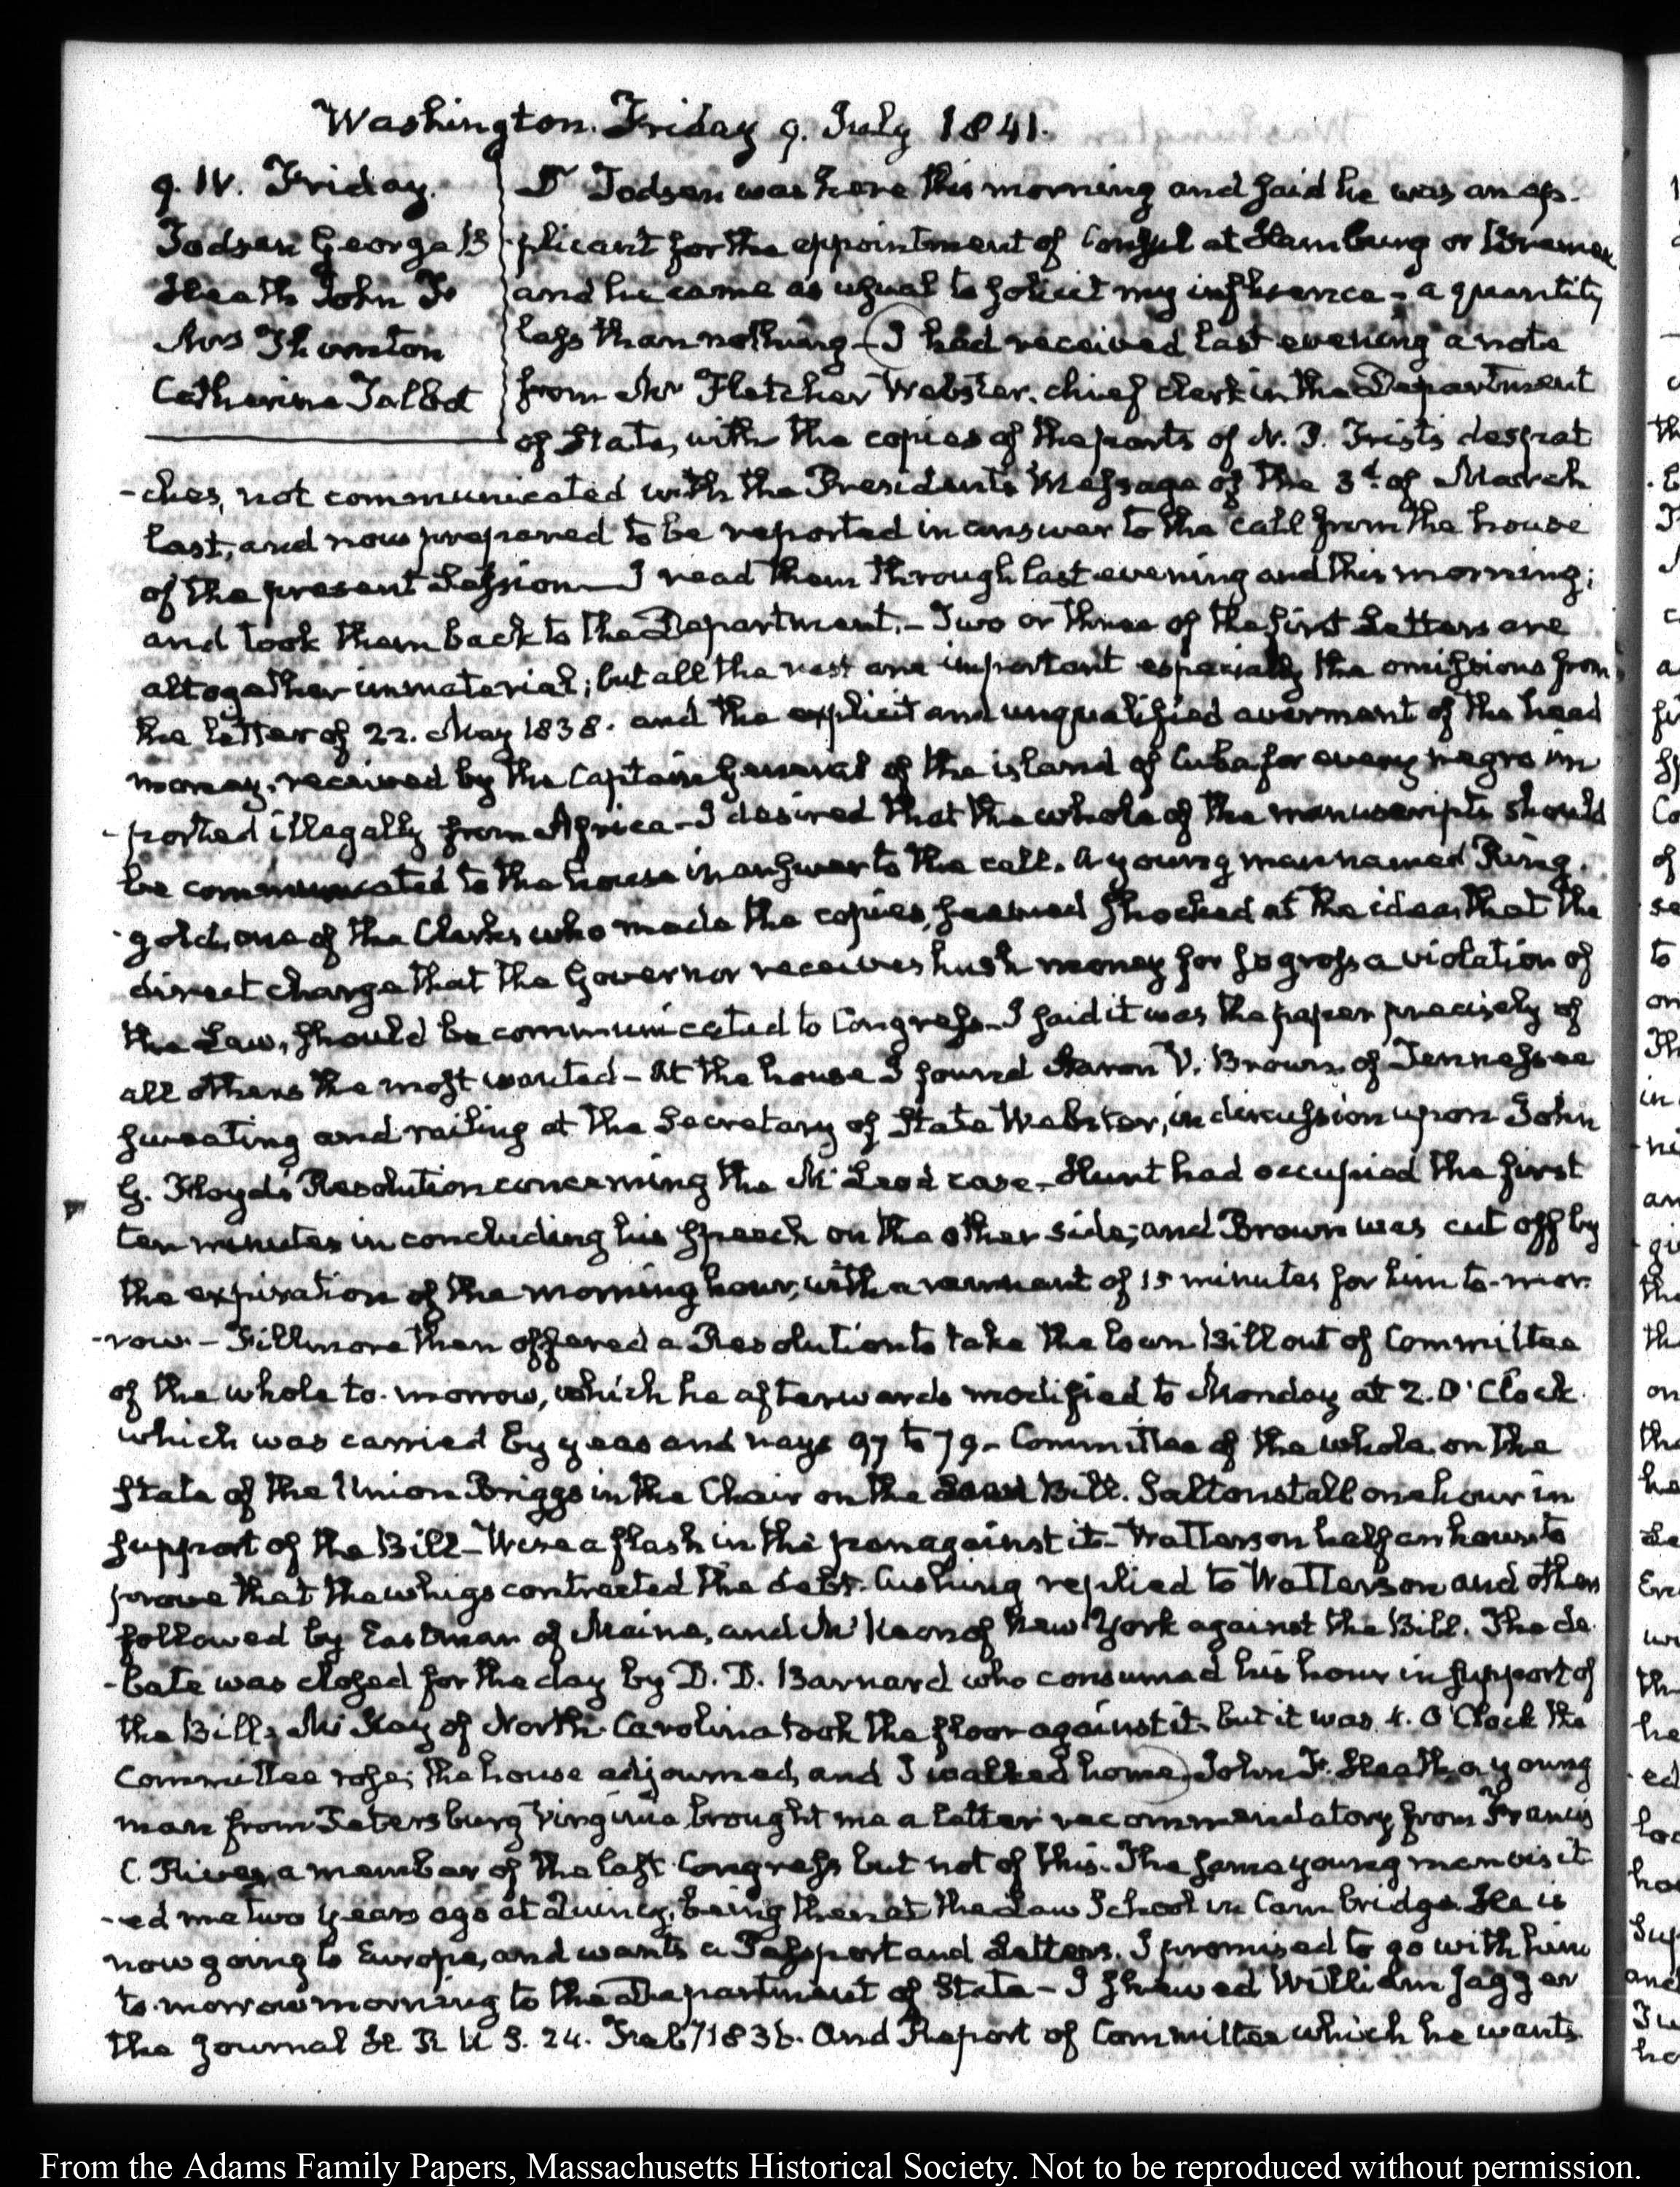 Washington. Friday 9. July 1841.
9. IV. Friday.
Todsen George B
Heath John F.
Mrs Thornton
Catherine Talbot
Dr Todsen was here this morning and said he was an ap-
-plicant for the appointment of Consul at Hamburg or Bremen
and he came as usual to solicit my influence - a quantity
less than nothing - I had received last evening a note
from Mr Fletcher Webster, chief clerk in the Department
of State, with the copies of the parts of N. P. Trist's despat
-ches, not communicated with the Presidents Message of the 3d. of March
last, and now prepared to be reported in answer to the call from the house
of the present Session - I read them through last evening and this morning;
and took them back to the Department. - Two or three of the first Letters are
altogether immaterial; but all the rest are important especially the omissions from
the letter of 22. May 1838. and the explicit and unqualified averment of the head
money, received by the Captain General of the island of Cuba for every negro im
-ported illegally from Africa - I desired that the whole of the manuscripts should
be communicated to the house in answer to the call. A young man named Ring.
-gold, one of the Clerks who made the copies, seemed shocked at the idea, that the
direct charge that the Governor receives hush money for so gross a violation of
the Law, should be communicated to Congress - I said it was the paper precisely of
all others the most wanted - At the house I found Aaron V. Brown of Tennessee
sweating and railing at the Secretary of State Webster, in discussion upon John
G. Floyd's Resolution concerning the McLeod case - Hunt had occupied the first
ten minutes in concluding his speech on the other side; and Brown was cut off by
the expiration of the morning hour, with a remnant of 15 minutes for him to-mor-
-row - Fillmore then offered a Resolution to take the loan Bill out of Committee
of the whole to-morrow, which he afterwards modified to Monday at 2. O'Clock
which was carried by yeas and nays 97 to 79 - Committee of the whole, on the
State of the Union Briggs in the Chair on the Loan Bill. Saltonstall one hour in
support of the Bill - Wise a flash in the pan against it - Watterson half an hour to
prove that the whigs contracted the debt. Cushing replied to Watterson and others
followed by Eastman of Maine, and McKeon of New York against the Bill. The de
-bate was closed for the day by D. D. Barnard who consumed his hour in support of
the Bill; McKay of North-Carolina took the floor against it, but it was 4. O'Clock the
Committee rose; the house adjourned, and I walked home. John F. Heath a young
man from Petersburg Virginia, brought me a letter recommendatory from Francis
C. Rives a member of the last Congress but not of this. The same young man visit
-ed me two years ago at Quincy, being then at the Law School in Cambridge. He is
now going to Europe, and wants a Passport and Letters. I promised to go with him
to-morrow morning to the Department of State - I shewed William Jagger
the Journal H. R. U. S. 24. Feb 1836. and Report of Committee which he wants
From the Adams Family Papers, Massachusetts Historical Society. Not to be reproduced without permission.